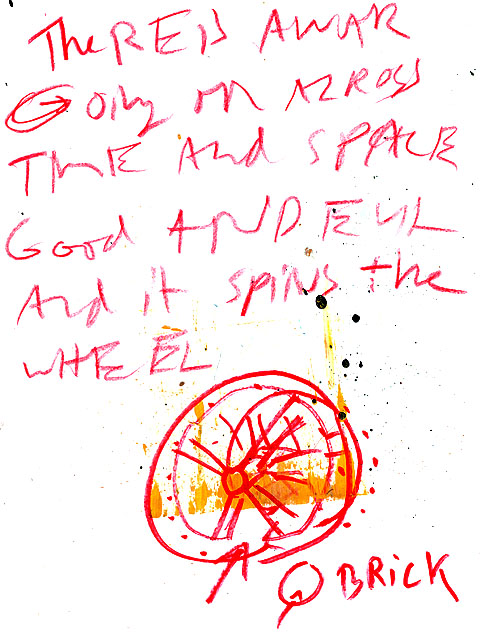 THERE IS A WAR
GOING ON ACROSS
TIME AND SPACE
GOOD AND EVIL
AND it SPINS the
WHEEL
Q BRICK